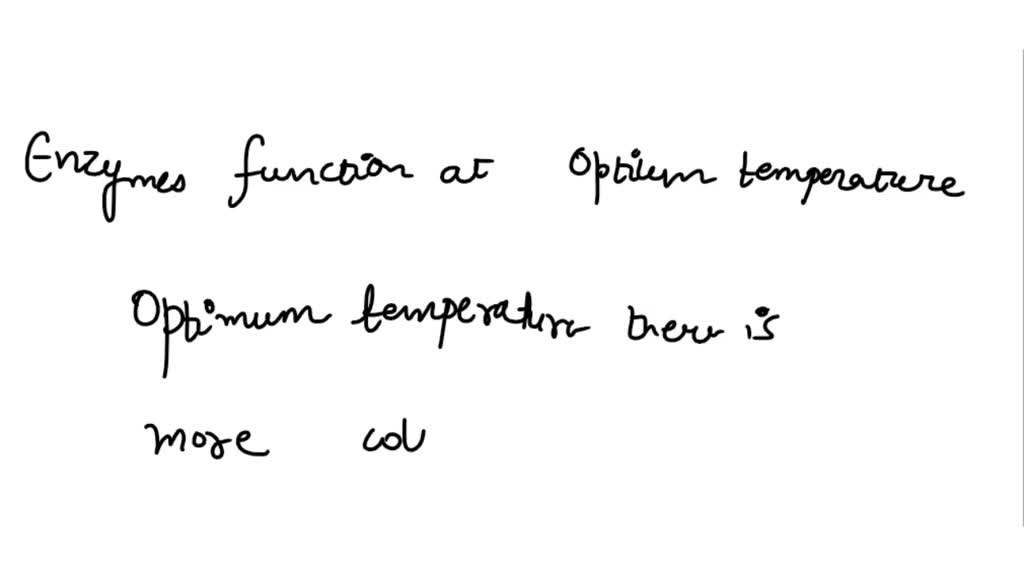 Enzymes function at Optium temperature
Optimum temperature there is
more col